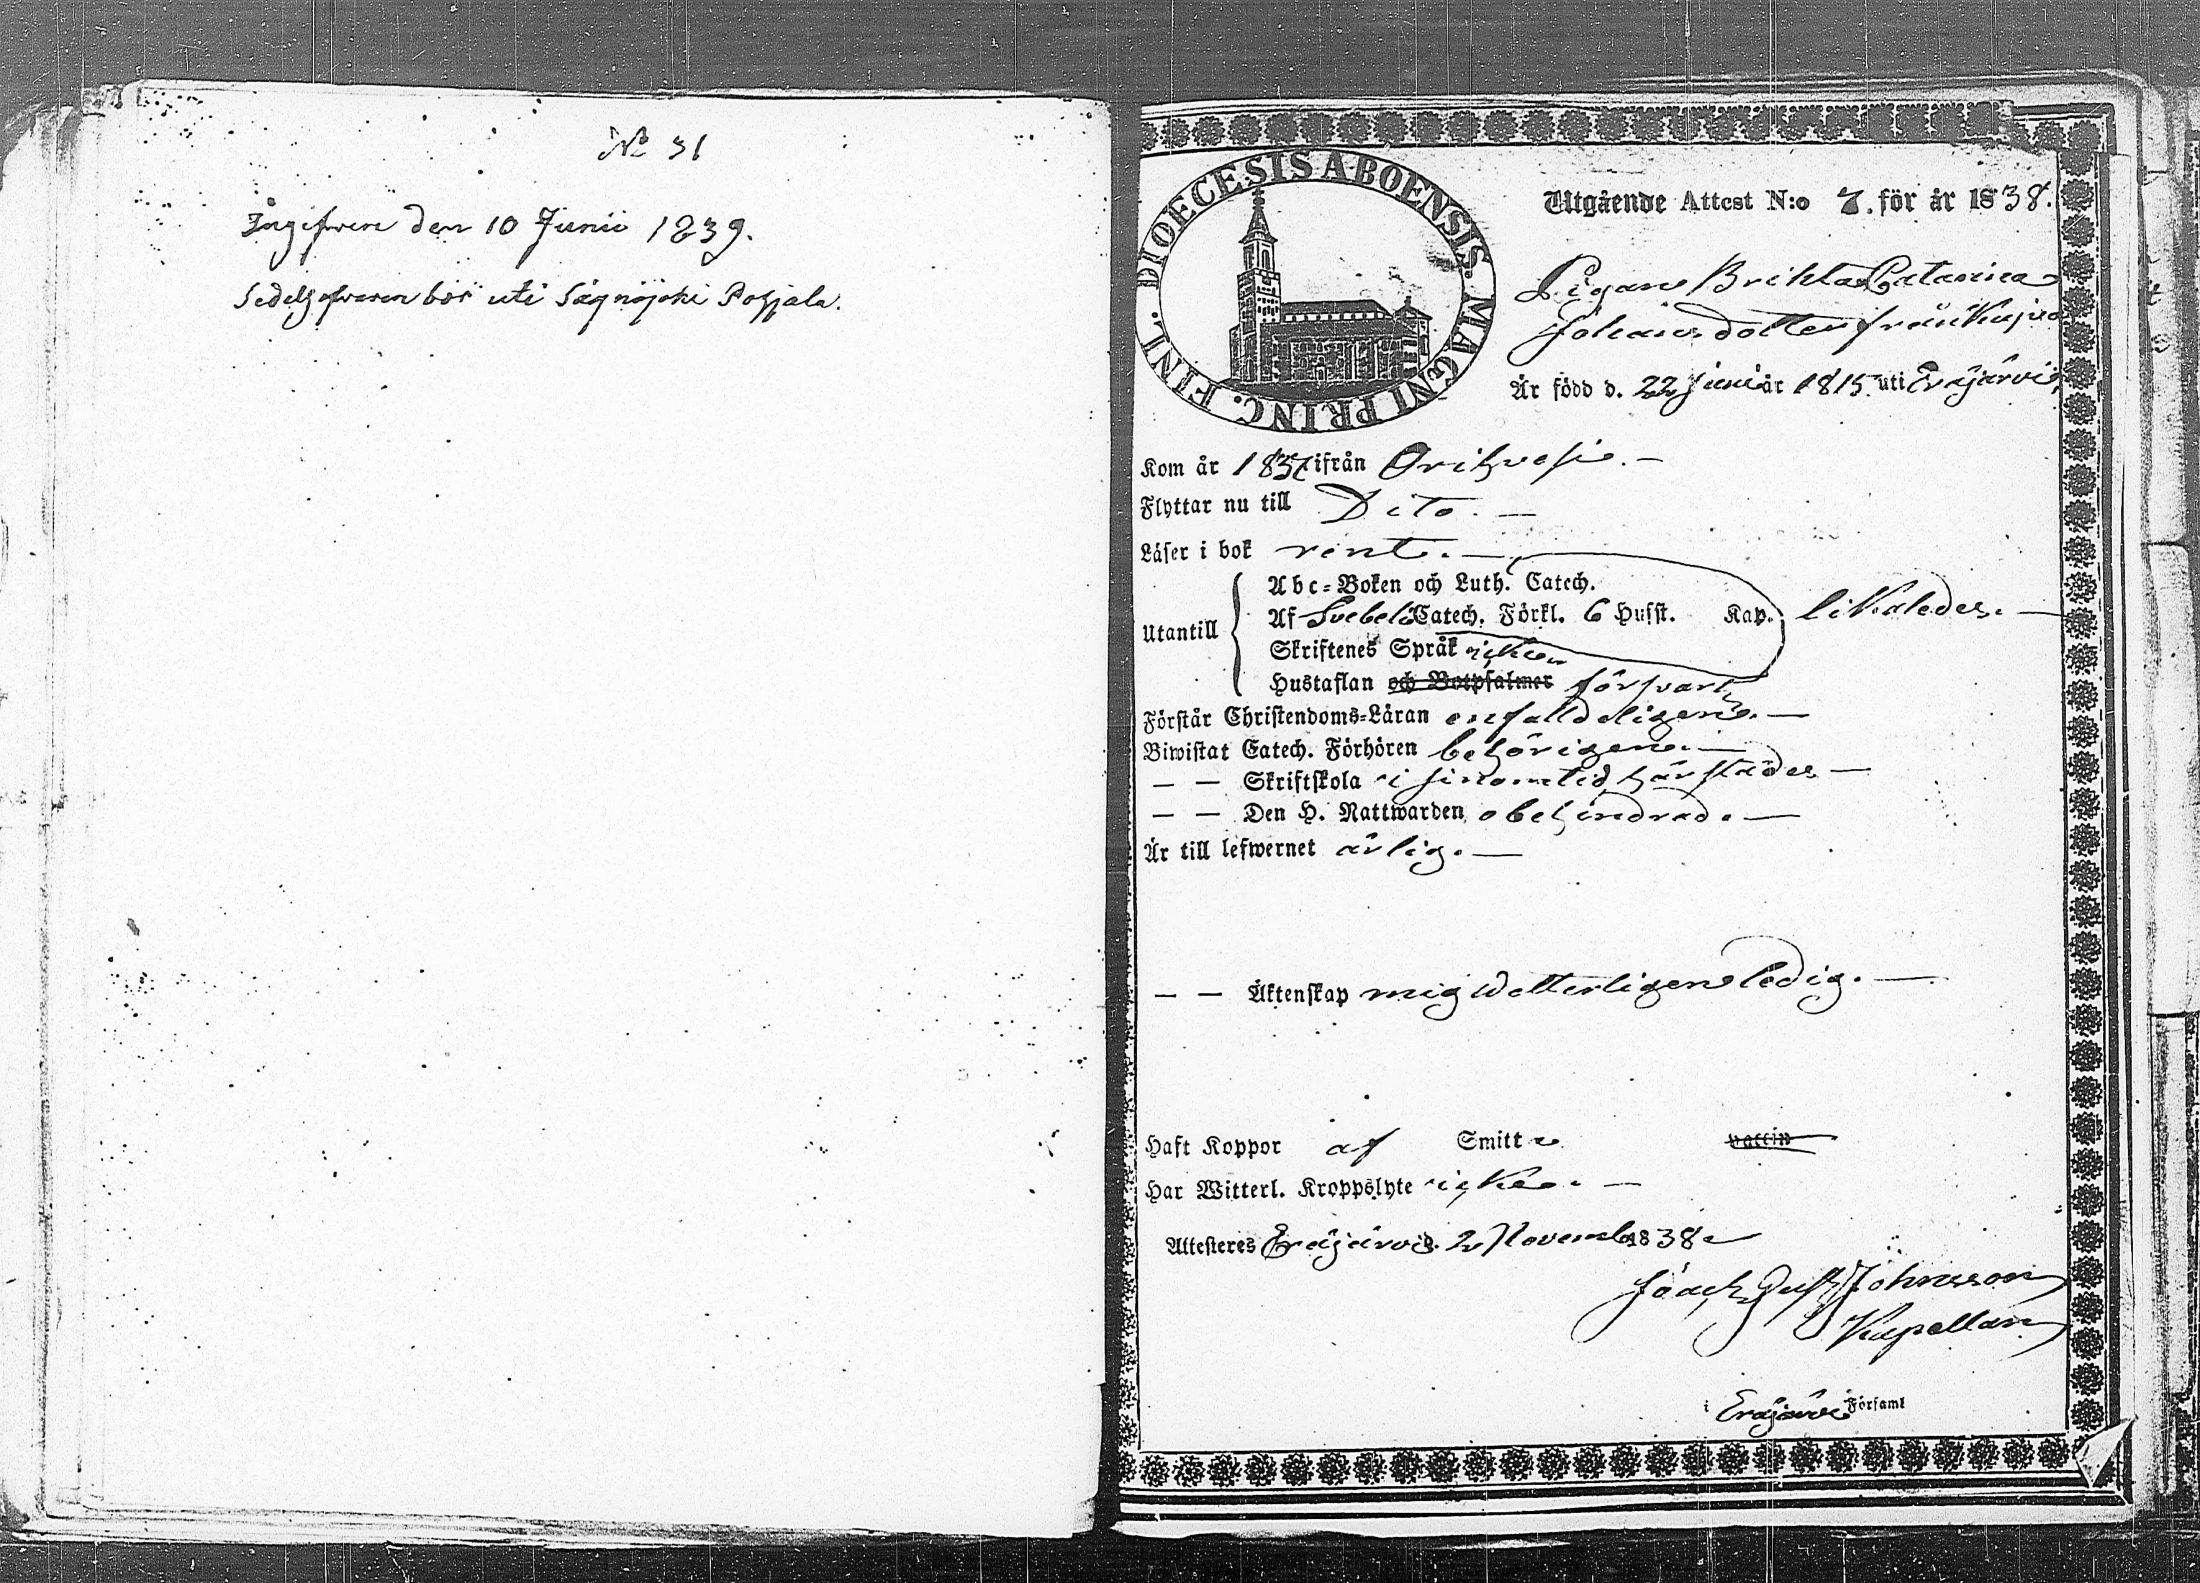 No 31
Ingifven den 10 Junii 1839.
Sedelhafvaren bor uti Sägnäjoki Pohjala.
DIOECESIS ABOENSIS. MAGNI PRINC. FINL.
Utgående Attest N:o 7. för år 1838.
Pigan Brihta Catarina
Johans dotter från
Är född d. 22 Junii år 1815 uti Eräjärvi
Kom år 1837 ifrån Orihvesi. —
Flyttar nu till Dito. —
Läser i bok rent. —
Utantill
Abc-Boken och Luth. Catech.
Af Svebeli Catech. Förkl. 6 Husst. Kap. likaledes. —
Skriftenes Språk icke
Hustaflan och Botpsalmer försvarl.
Förstår Christendoms-Läran enfalldeligen. —
Biwistat Catech. Förhören behörigen. —
— — Skriftskola i sinom tid härstädes —
— — Den H. Nattwarden obehindrad. —
Är till lefwernet ärlig. —
— — Äktenskap mig Wetterligen ledig. —
Haft Koppor af Smitt vaccin
Har Witterl. Kroppslyte icke. —
Attesteres Eräjärvi d. 2 Novemb. 1838
Joach. Gust. Johnsson
Kapellan
i Eräjärvi Församl